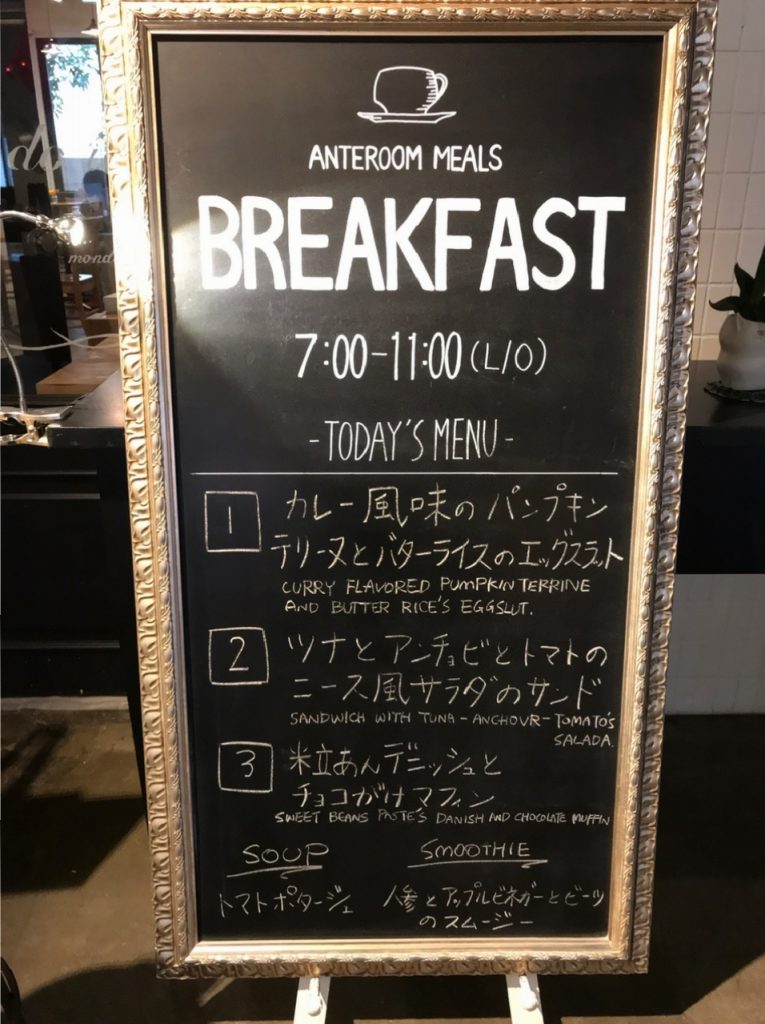 ANTEROOM MEALS
BREAKFAST
7:00-11:00 (L/O)
-TODAY'S MENU-
1 カレー風味のパンプキン
テリーヌとバターライスのエッグスラット
CURRY FLAVORED PUMPKIN TERRINE
AND BUTTER RICE'S EGGSLUT.
2 ツナとアンチョビとトマトの
ニース風サラダのサンド
SANDWICH WITH TUNA-ANCHOUR-TOMATO'S
SALADA.
3 粒あんデニッシュと
チョコがけマフィン
SWEET BEANS PASTE'S DANISH AND CHOCOLATE MUFFIN
SOUP
トマトポタージュ
SMOOTHIE
人参とアップルビネガーとビーツ
のスムージー
do
mond